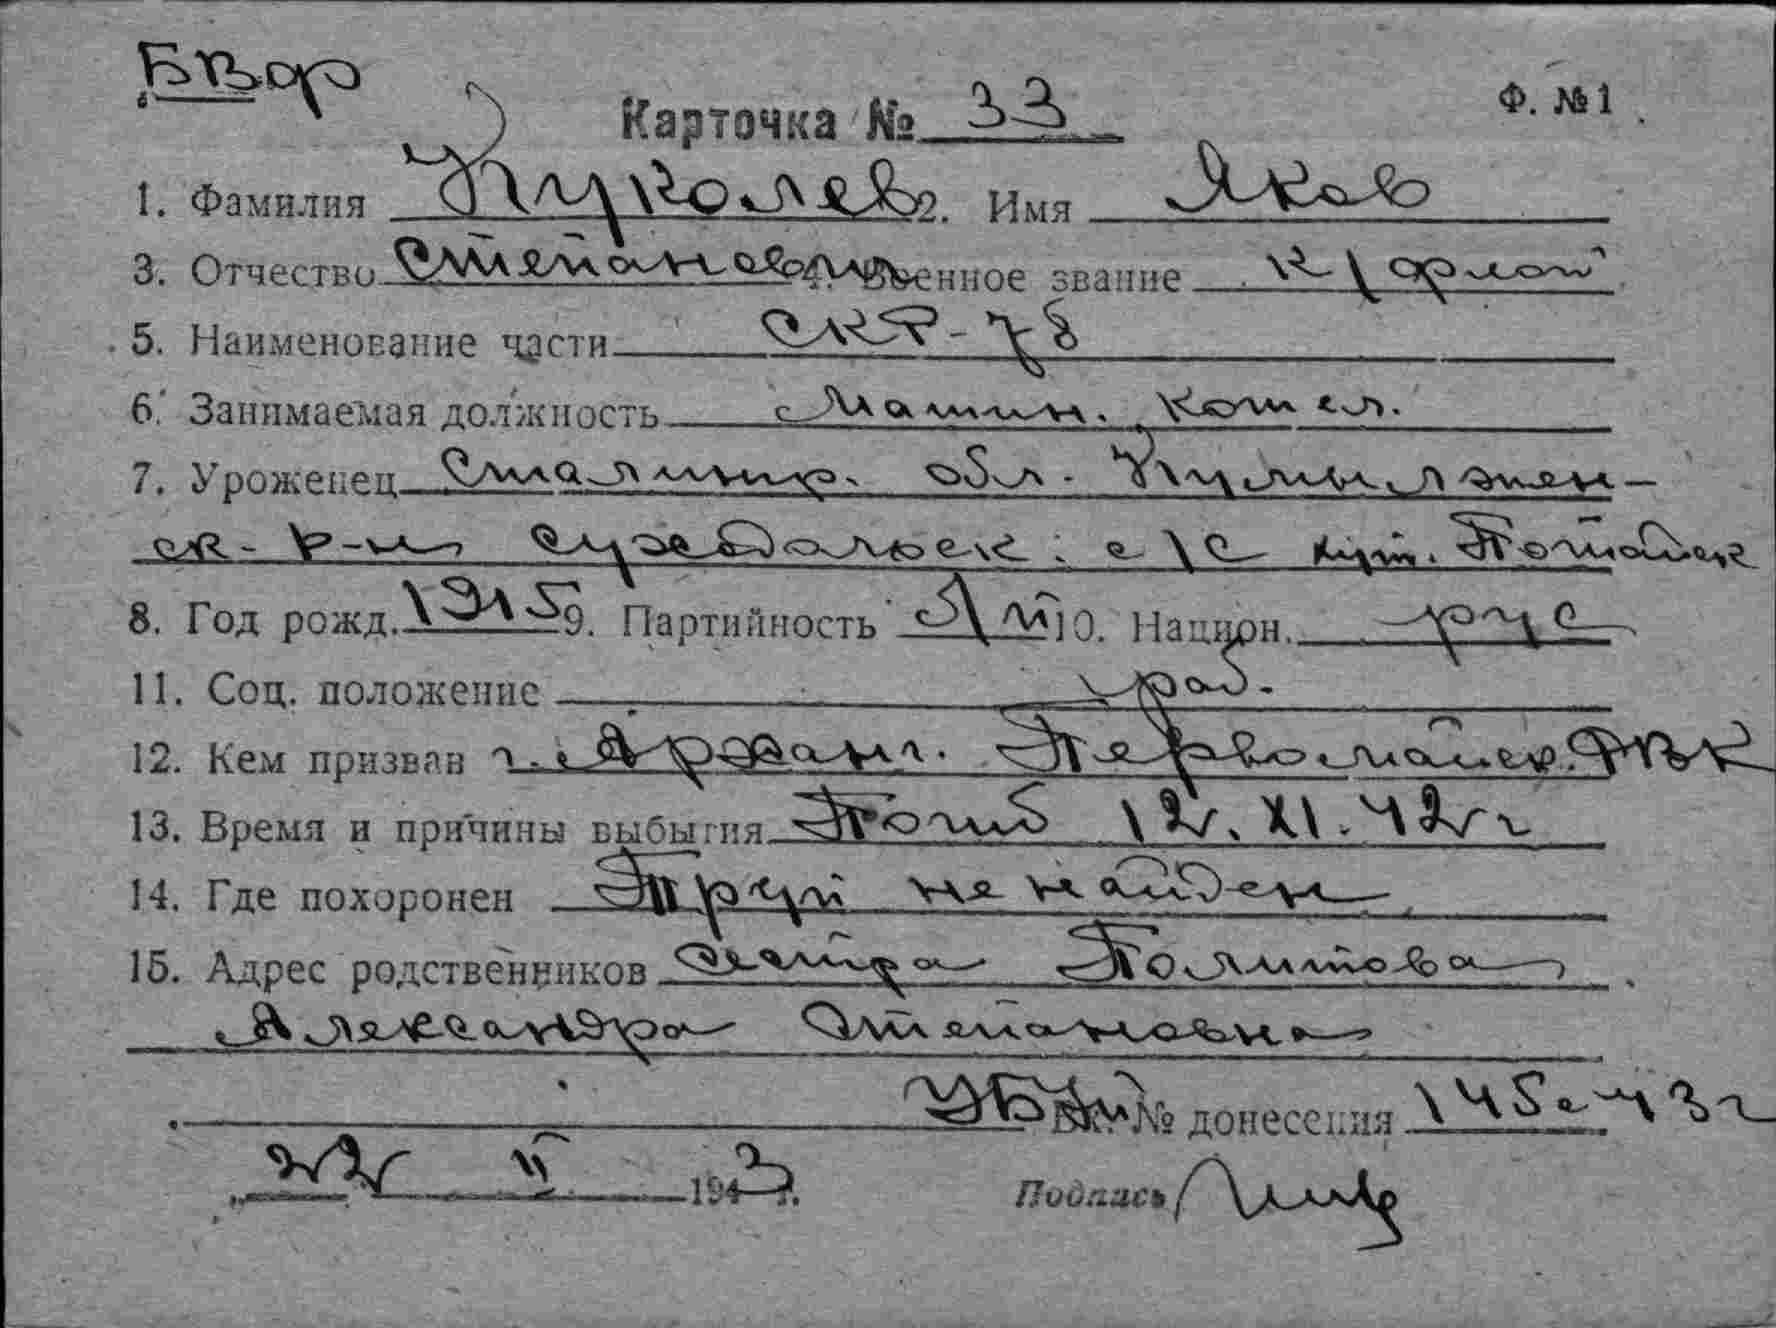 Карточка № 33 Ф. №1
1. Фамилия Куколев 2. Имя Яков
3. Отчество Степанович 4. Военное звание к/флот
5. Наименование части СКР-78
6. Занимаемая должность Машин. котел.
7. Уроженец Сталингр. обл.
ск. р-н с/с хут.
8. Год рожд. 1915 9. Партийность 10. Национ. рус
11. Соц. положение раб.
12. Кем призван г. Архангл. Первомайск. РВК
13. Время и причины выбытия Погиб 12.XI.42г
14. Где похоронен Труп не найден
15. Адрес родственников сестра Политова
Александра Степановна
Вх. № донесения 145с-43г
22 VI 1943г.
Подпись